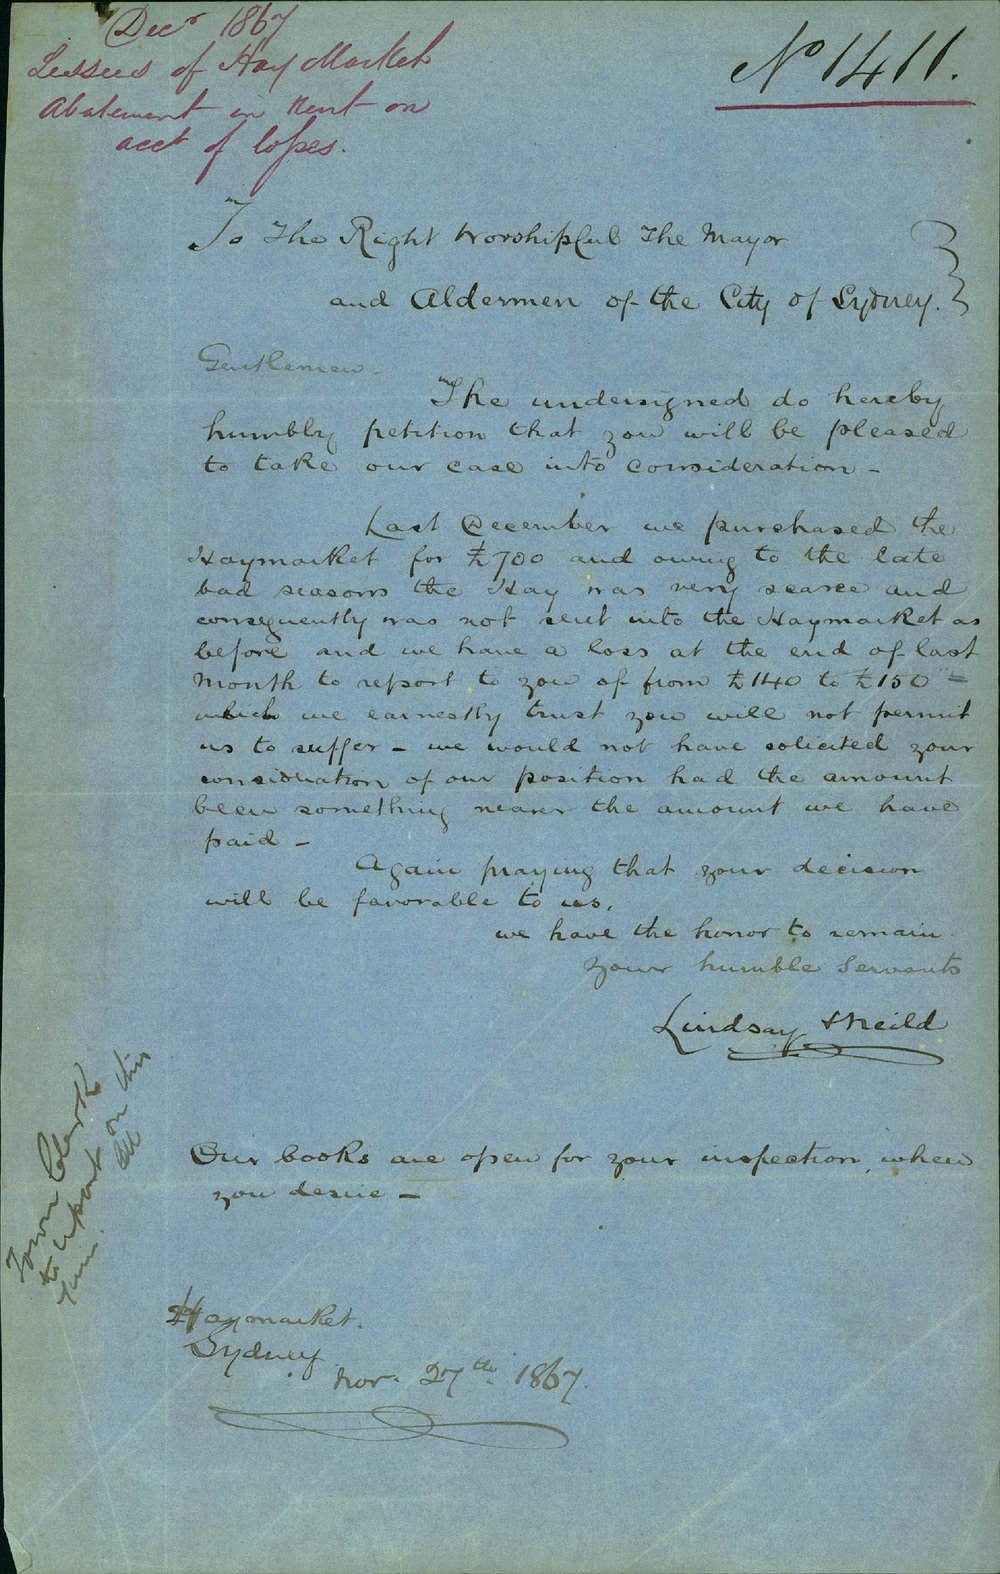 Decr 1867
Lessees of Hay Market
Abatement in Rent on
acct of losses.
No 1411.
To The Right Worshipful The Mayor
and Aldermen of the City of Sydney.
Gentlemen -
The undersigned do hereby
humbly petition that you will be pleased
to take our case into consideration -
Last December we purchased the
Haymarket for £700 and owing to the late
bad seasons the Hay was very scarce and
consequently was not sent into the Haymarket as
before and we have a loss at the end of last
Month to report to you of from £140 to £150 =
which we earnestly trust you will not permit
us to suffer - we would not have solicited your
consideration of our position had the amount
been something nearer the amount we have
paid -
Again praying that your decision
will be favorable to us,
we have the honor to remain
your humble Servants
Lindsay & Neild
Our books are open for your inspection, when
you desire -
Town Clerk
to report on this
Haymarket.
Sydney
Nov. 27th 1867.